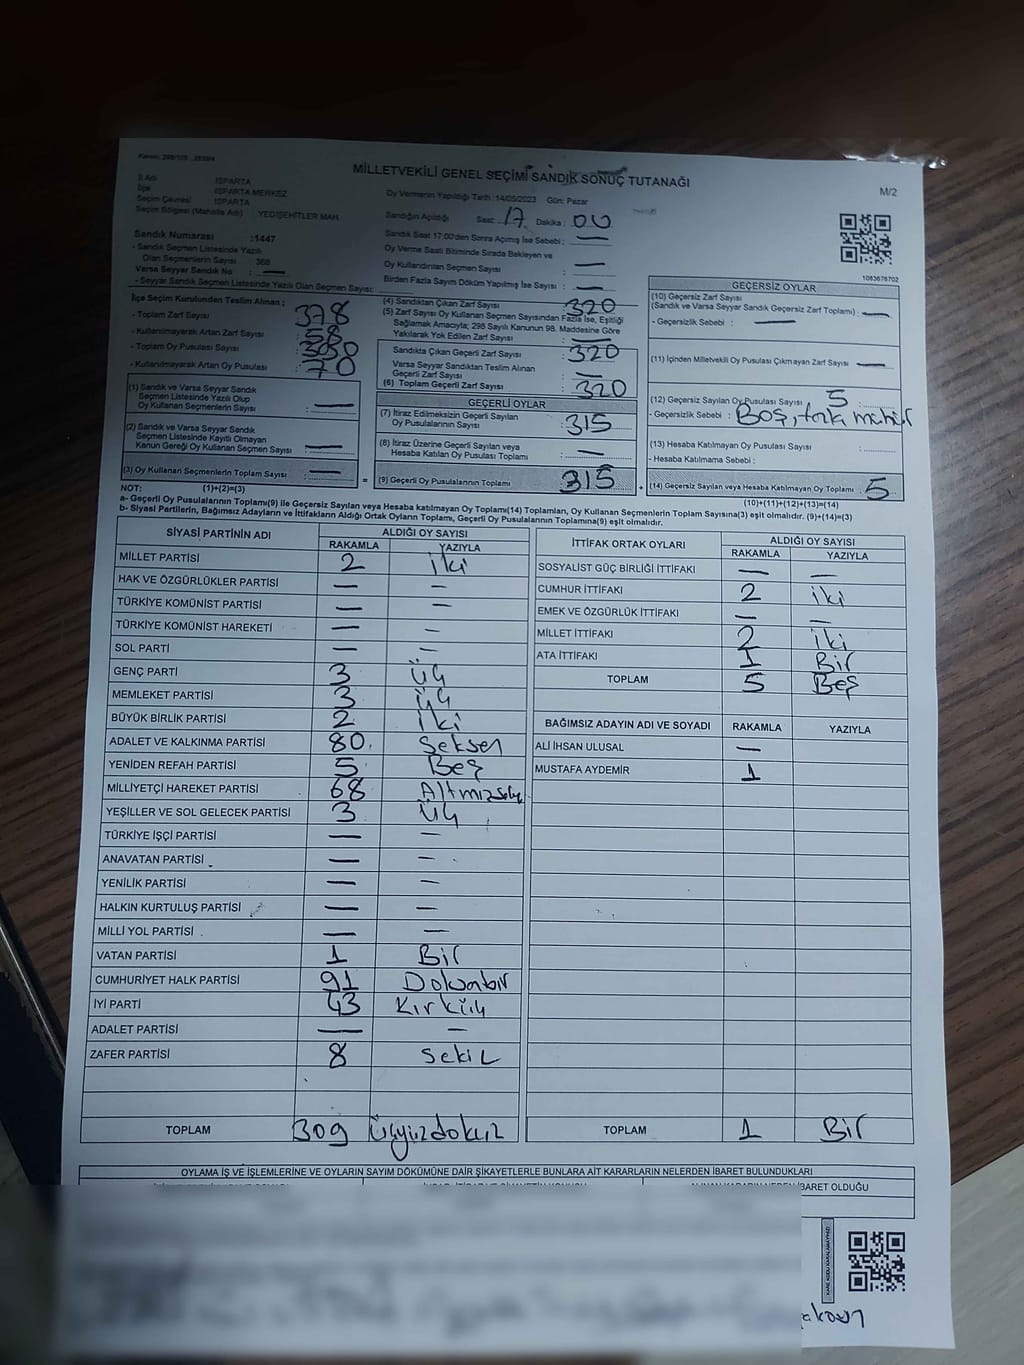 MİLLETVEKİLİ GENEL SEÇİMİ SANDIK SONUÇ TUTANAĞI
M/2
İl Adı : ISPARTA
İlçe : ISPARTA MERKEZ
Seçim Çevresi : ISPARTA
Seçim Bölgesi (Mahalle Adı) : YEDİŞEHİTLER MAH.
Oy Vermenin Yapıldığı Tarih : 14/05/2023 Gün: Pazar
Sandığın Açıldığı Saat : 17 Dakika : 00
Sandık Saat 17:00'den Sonra Açılmış İse Sebebi : —
Oy Verme Saati Bitiminde Sırada Bekleyen ve
Oy Kullandırılan Seçmen Sayısı : —
Birden Fazla Sayım Döküm Yapılmış İse Sayısı : —
Sandık Numarası : 1447
- Sandık Seçmen Listesinde Yazılı
Olan Seçmenlerin Sayısı : 368
Varsa Seyyar Sandık No : —
- Seyyar Sandık Listesinde Yazılı Olan Seçmen Sayısı:
1083676702
İlçe Seçim Kurulundan Teslim Alınan ;
- Toplam Zarf Sayısı : 378
- Kullanılmayarak Artan Zarf Sayısı : 58
- Toplam Oy Pusulası Sayısı :
- Kullanılmayarak Artan Oy Pusulası : 70
(1) Sandık ve Varsa Seyyar Sandık
Seçmen Listesinde Yazılı Olup
Oy Kullanan Seçmenlerin Sayısı : —
(2) Sandık ve Varsa Seyyar Sandık
Seçmen Listesinde Kayıtlı Olmayan
Kanun Gereği Oy Kullanan Seçmen Sayısı : —
(3) Oy Kullanan Seçmenlerin Toplam Sayısı : —
(4) Sandıktan Çıkan Zarf Sayısı : 320
(5) Zarf Sayısı Oy Kullanan Seçmen Sayısından Fazla İse, Eşitliği
Sağlamak Amacıyla; 298 Sayılı Kanunun 98. Maddesine Göre
Yakılarak Yok Edilen Zarf Sayısı : —
Sandıkta Çıkan Geçerli Zarf Sayısı : 320
Varsa Seyyar Sandıktan Teslim Alınan
Geçerli Zarf Sayısı : —
(6) Toplam Geçerli Zarf Sayısı : 320
GEÇERLİ OYLAR
(7) İtiraz Edilmeksizin Geçerli Sayılan
Oy Pusulalarının Sayısı : 315
(8) İtiraz Üzerine Geçerli Sayılan veya
Hesaba Katılan Oy Pusulası Toplamı : —
(9) Geçerli Oy Pusulalarının Toplamı : 315
GEÇERSİZ OYLAR
(10) Geçersiz Zarf Sayısı
(Sandık ve Varsa Seyyar Sandık Geçersiz Zarf Toplamı) : —
- Geçersizlik Sebebi : —
(11) İçinden Milletvekili Oy Pusulası Çıkmayan Zarf Sayısı : —
(12) Geçersiz Sayılan Oy Pusulası Sayısı : 5
- Geçersizlik Sebebi : Boş,
(13) Hesaba Katılmayan Oy Pusulası Sayısı :
- Hesaba Katılmama Sebebi :
(14) Geçersiz Sayılan veya Hesaba Katılmayan Oy Toplamı : 5
NOT: (1)+(2)=(3)
(10)+(11)+(12)+(13)=(14)
a- Geçerli Oy Pusulalarının Toplamı(9) ile Geçersiz Sayılan veya Hesaba katılmayan Oy Toplamı(14) Toplamları, Oy Kullanan Seçmenlerin Toplam Sayısına(3) eşit olmalıdır. (9)+(14)=(3)
b- Siyasi Partilerin, Bağımsız Adayların ve İttifakların Aldığı Ortak Oyların Toplamı, Geçerli Oy Pusulalarının Toplamına(9) eşit olmalıdır.
SİYASİ PARTİNİN ADI ALDIĞI OY SAYISI
RAKAMLA YAZIYLA
MİLLET PARTİSİ 2 iki
HAK VE ÖZGÜRLÜKLER PARTİSİ — —
TÜRKİYE KOMÜNİST PARTİSİ — —
TÜRKİYE KOMÜNİST HAREKETİ — —
SOL PARTİ — —
GENÇ PARTİ 3 üç
MEMLEKET PARTİSİ 3 üç
BÜYÜK BİRLİK PARTİSİ 2 iki
ADALET VE KALKINMA PARTİSİ 80 Seksen
YENİDEN REFAH PARTİSİ 5 Beş
MİLLİYETÇİ HAREKET PARTİSİ 68
YEŞİLLER VE SOL GELECEK PARTİSİ 3 üç
TÜRKİYE İŞÇİ PARTİSİ — —
ANAVATAN PARTİSİ — —
YENİLİK PARTİSİ — —
HALKIN KURTULUŞ PARTİSİ — —
MİLLİ YOL PARTİSİ — —
VATAN PARTİSİ 1 Bir
CUMHURİYET HALK PARTİSİ 91
İYİ PARTİ 43 Kırküç
ADALET PARTİSİ — —
ZAFER PARTİSİ 8 sekiz
TOPLAM 309 üçyüzdokuz
İTTİFAK ORTAK OYLARI ALDIĞI OY SAYISI
RAKAMLA YAZIYLA
SOSYALİST GÜÇ BİRLİĞİ İTTİFAKI — —
CUMHUR İTTİFAKI 2 iki
EMEK VE ÖZGÜRLÜK İTTİFAKI — —
MİLLET İTTİFAKI 2 iki
ATA İTTİFAKI 1 Bir
TOPLAM 5 Beş
BAĞIMSIZ ADAYIN ADI VE SOYADI RAKAMLA YAZIYLA
ALİ İHSAN ULUSAL —
MUSTAFA AYDEMİR 1
TOPLAM 1 Bir
OYLAMA İŞ VE İŞLEMLERİNE VE OYLARIN SAYIM DÖKÜMÜNE DAİR ŞİKAYETLERLE BUNLARA AİT KARARLARIN NELERDEN İBARET BULUNDUKLARI
ALINAN KARARIN NEDEN İBARET OLDUĞU
KARE KODU KARALAMAYINIZ!